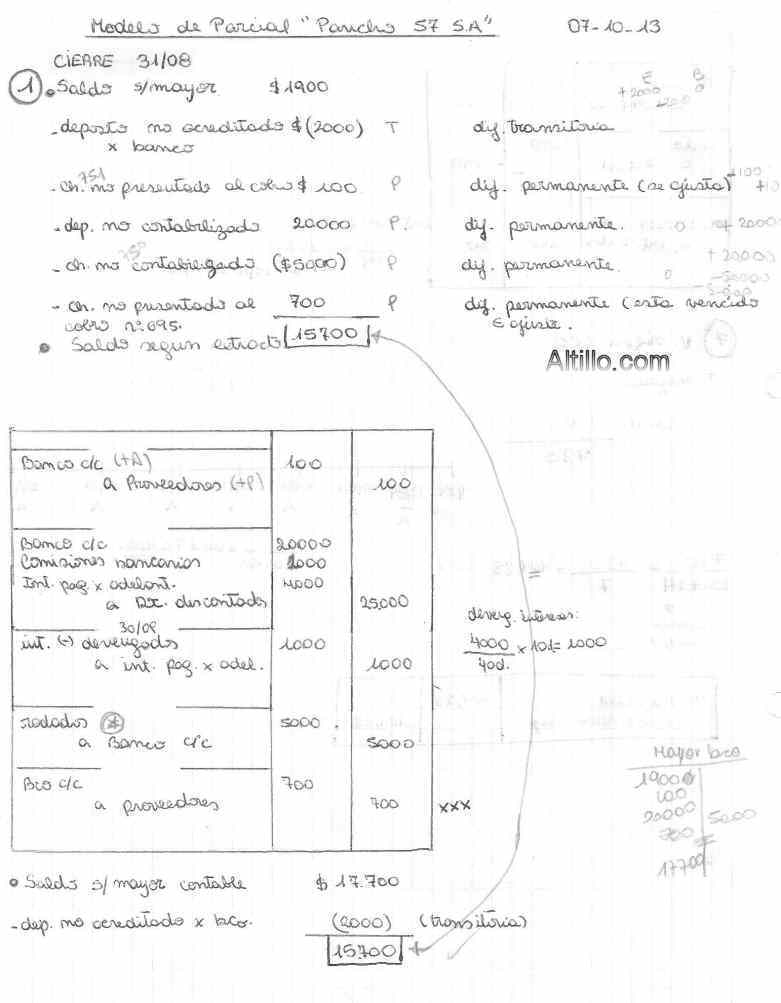 Modelo de Parcial "Pancho 57 S.A" 07-10-13
CIERRE 31/08
1 Saldo s/mayor $1900
- deposito no acreditado $(2000) T dif. transitoria
x banco
- ch. 751 no presentado al cobro $ 100 P dif. permanente (se ajusta)
- dep. no contabilizado 20000 P. dif. permanente.
- ch. no contabilizado ($5000) P dif. permanente.
- ch. no presentado al 700 P dif. permanente (esta vencido
cobro nº 695. ajuste.
Saldo segun extracto 15700
Altillo.com
Banco c/c (+A) 100
a Proveedores (+P) 100
Banco c/c 20000
Comisiones bancarias 1000
Int. pag x adelant. 4000
a Dx. descontado 25,000
30/09
int. (-) devengados 1000
a int. pag. x adel. 1000
deveng. intereses:
4000 x 10d = 1000
40d.
rodados 5000
a Banco c/c 5000
Bco c/c 700
a proveedores 700 xxx
Mayor bco
19000
100
20000 5000
700
17700
Saldo s/ mayor contable $ 17.700
- dep. no acreditado x bco. (2000) (transitoria)
15.700